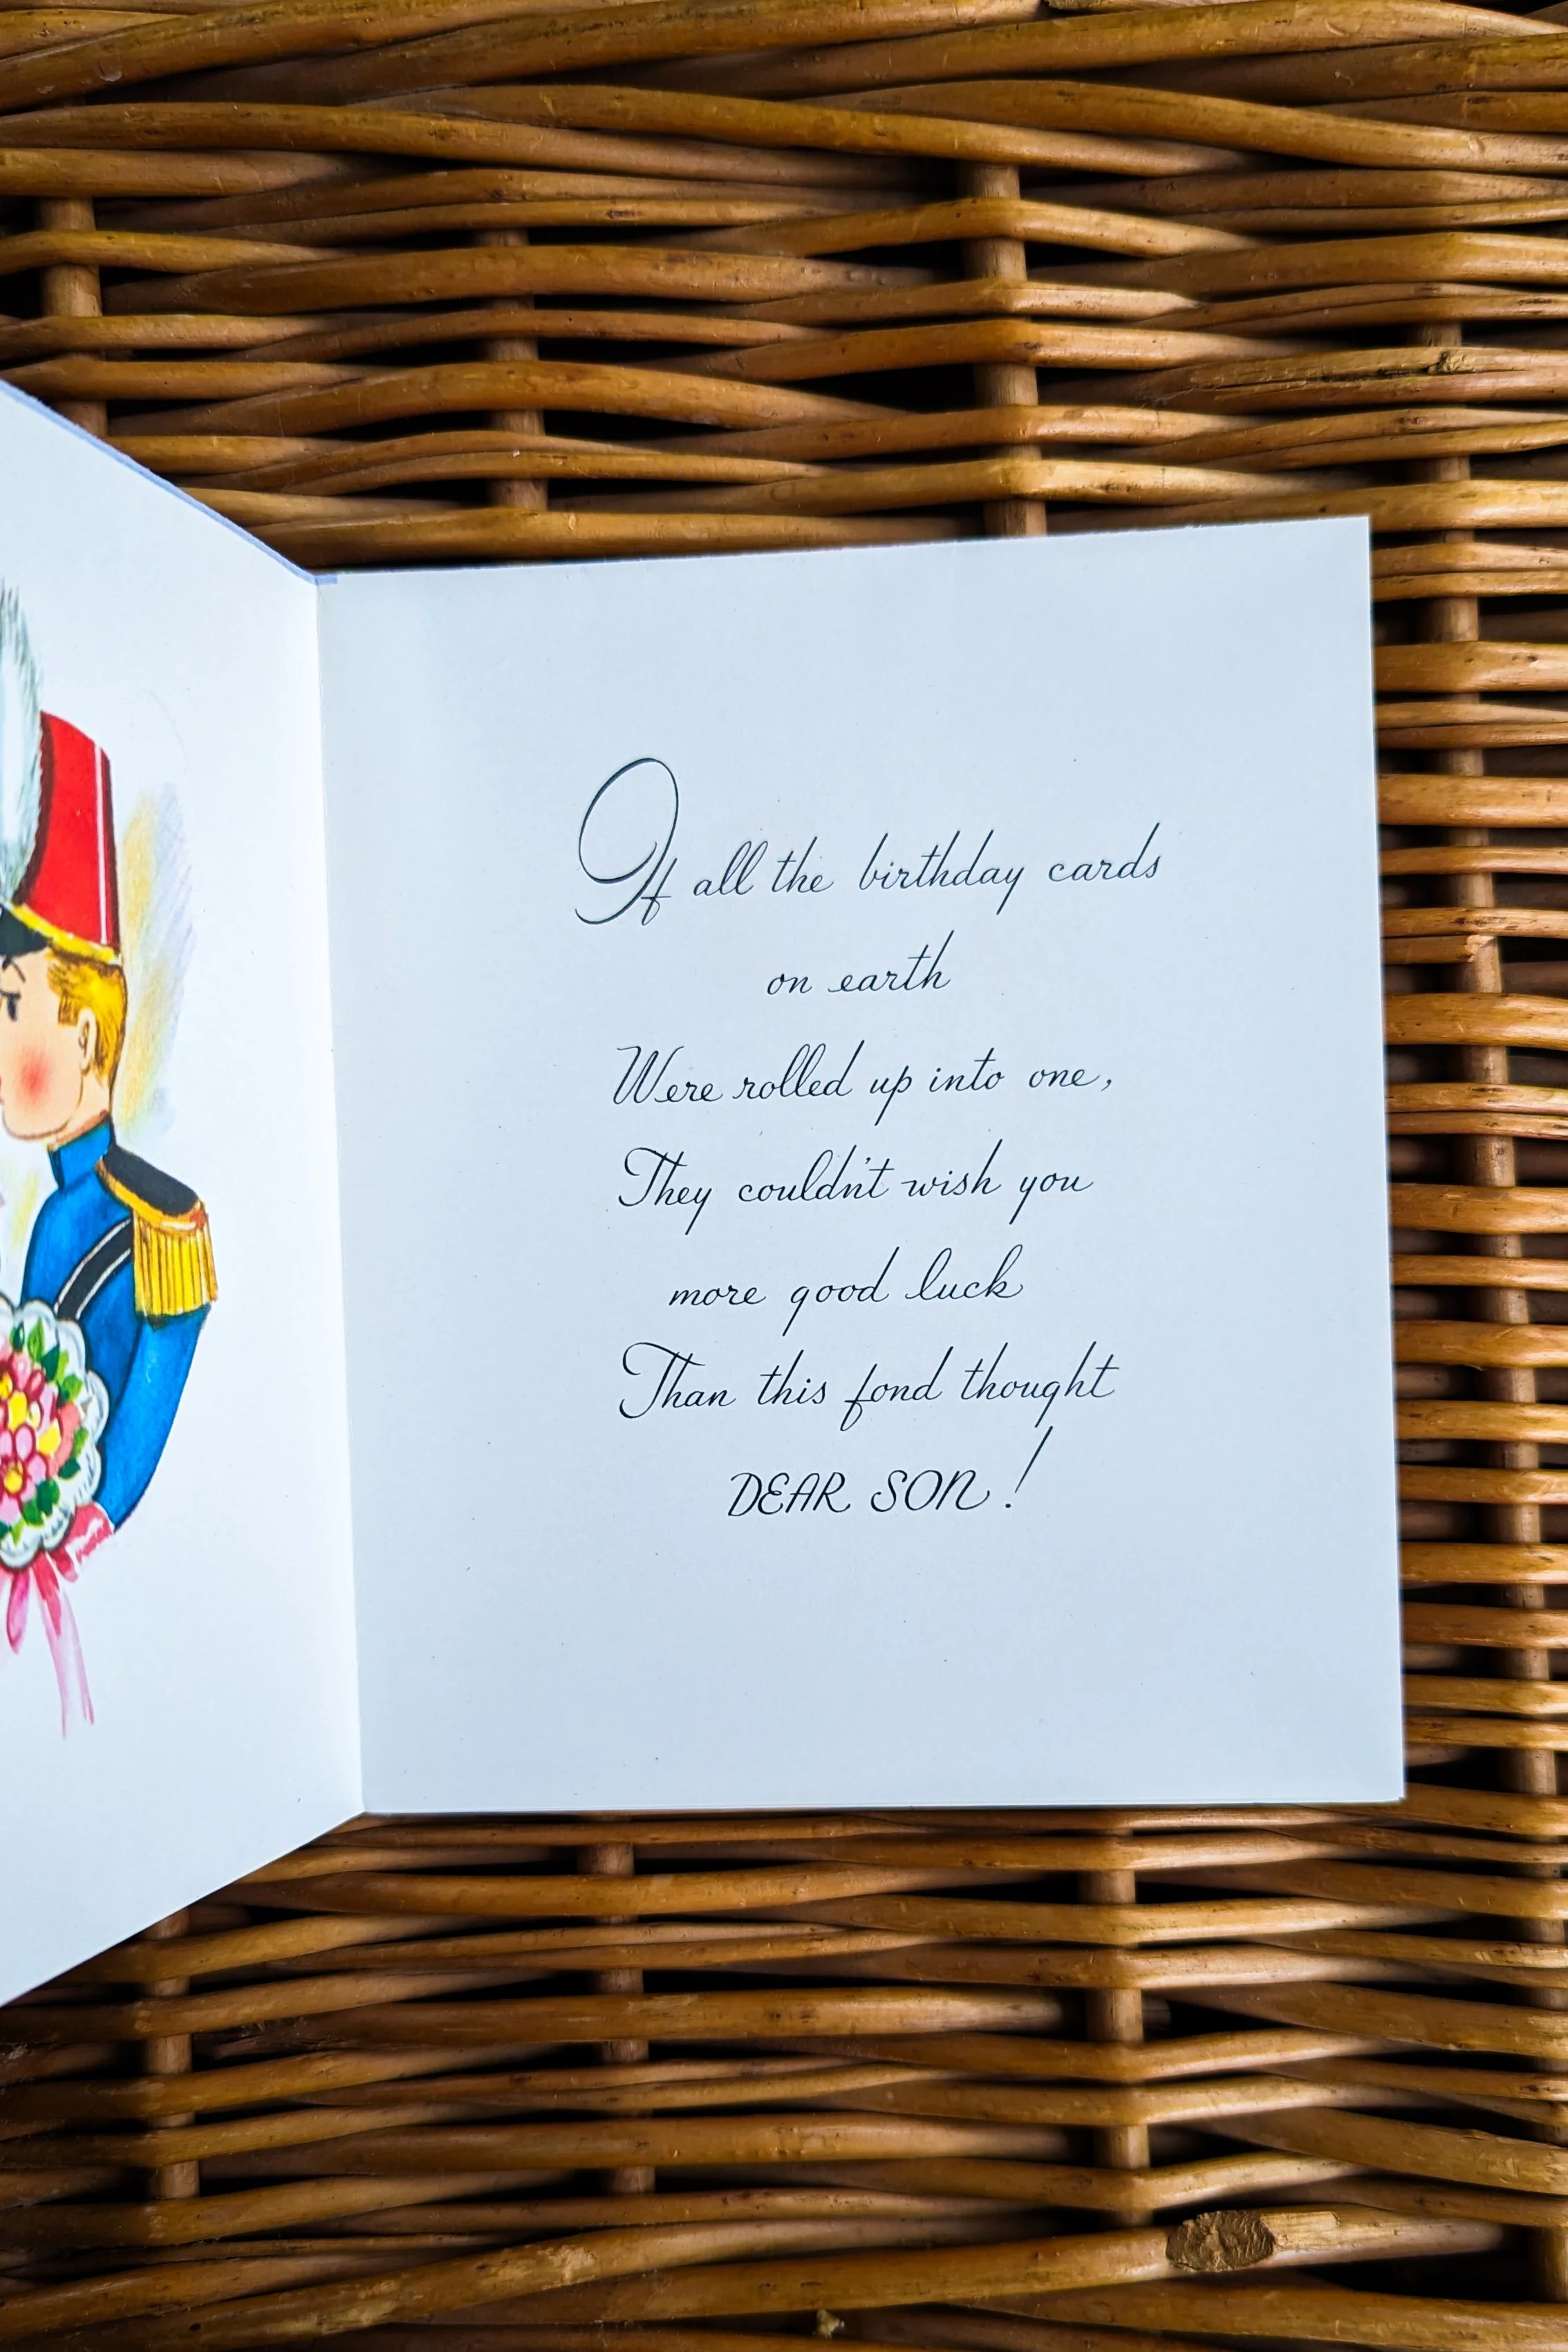 If all the birthday cards
on earth
Were rolled up into one,
They couldn't wish you
more good luck
Than this fond thought
DEAR SON!